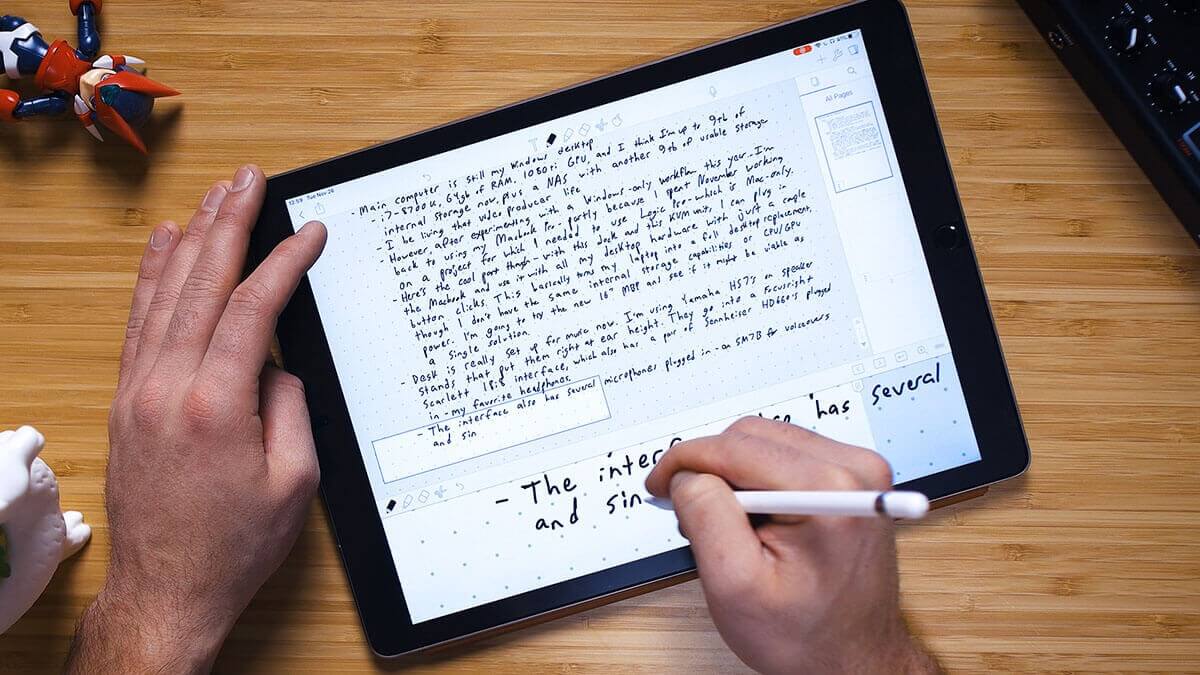 12:59 Tue Nov 26
91%
All Pages
- Main computer is still my Windows desktop
- i7-8700K, 64gb of RAM, 1080ti GPU, and I think I'm up to 9tb of
internal storage now, plus a NAS with another 9tb of usable storage
- I be living that video producer life
- However, after experimenting with a Windows-only workflow this year, I'm
back to using my Macbook Pro - partly because I spent November working
on a project for which I needed to use Logic Pro - which is Mac-only.
- Here's the cool part though - with this dock and this KVM unit, I can plug in
the Macbook and use it with all my desktop hardware with just a couple
button clicks. This basically turns my laptop into a full desktop replacement,
though I don't have the same internal storage capabilities or CPU/GPU
power. I'm going to try the new 16" MBP and see if it might be viable as
a single solution.
- Desk is really set up for music now. I'm using Yamaha HS7's on speaker
stands that put them right at ear height. They go into a Focusright
Scarlett 18i8 interface, which also has a pair of Sennheiser HD660's plugged
in - my favorite headphones.
- The interface also has several microphones plugged in - an SM7B for voiceovers
and sin
- The inter has several
and sin